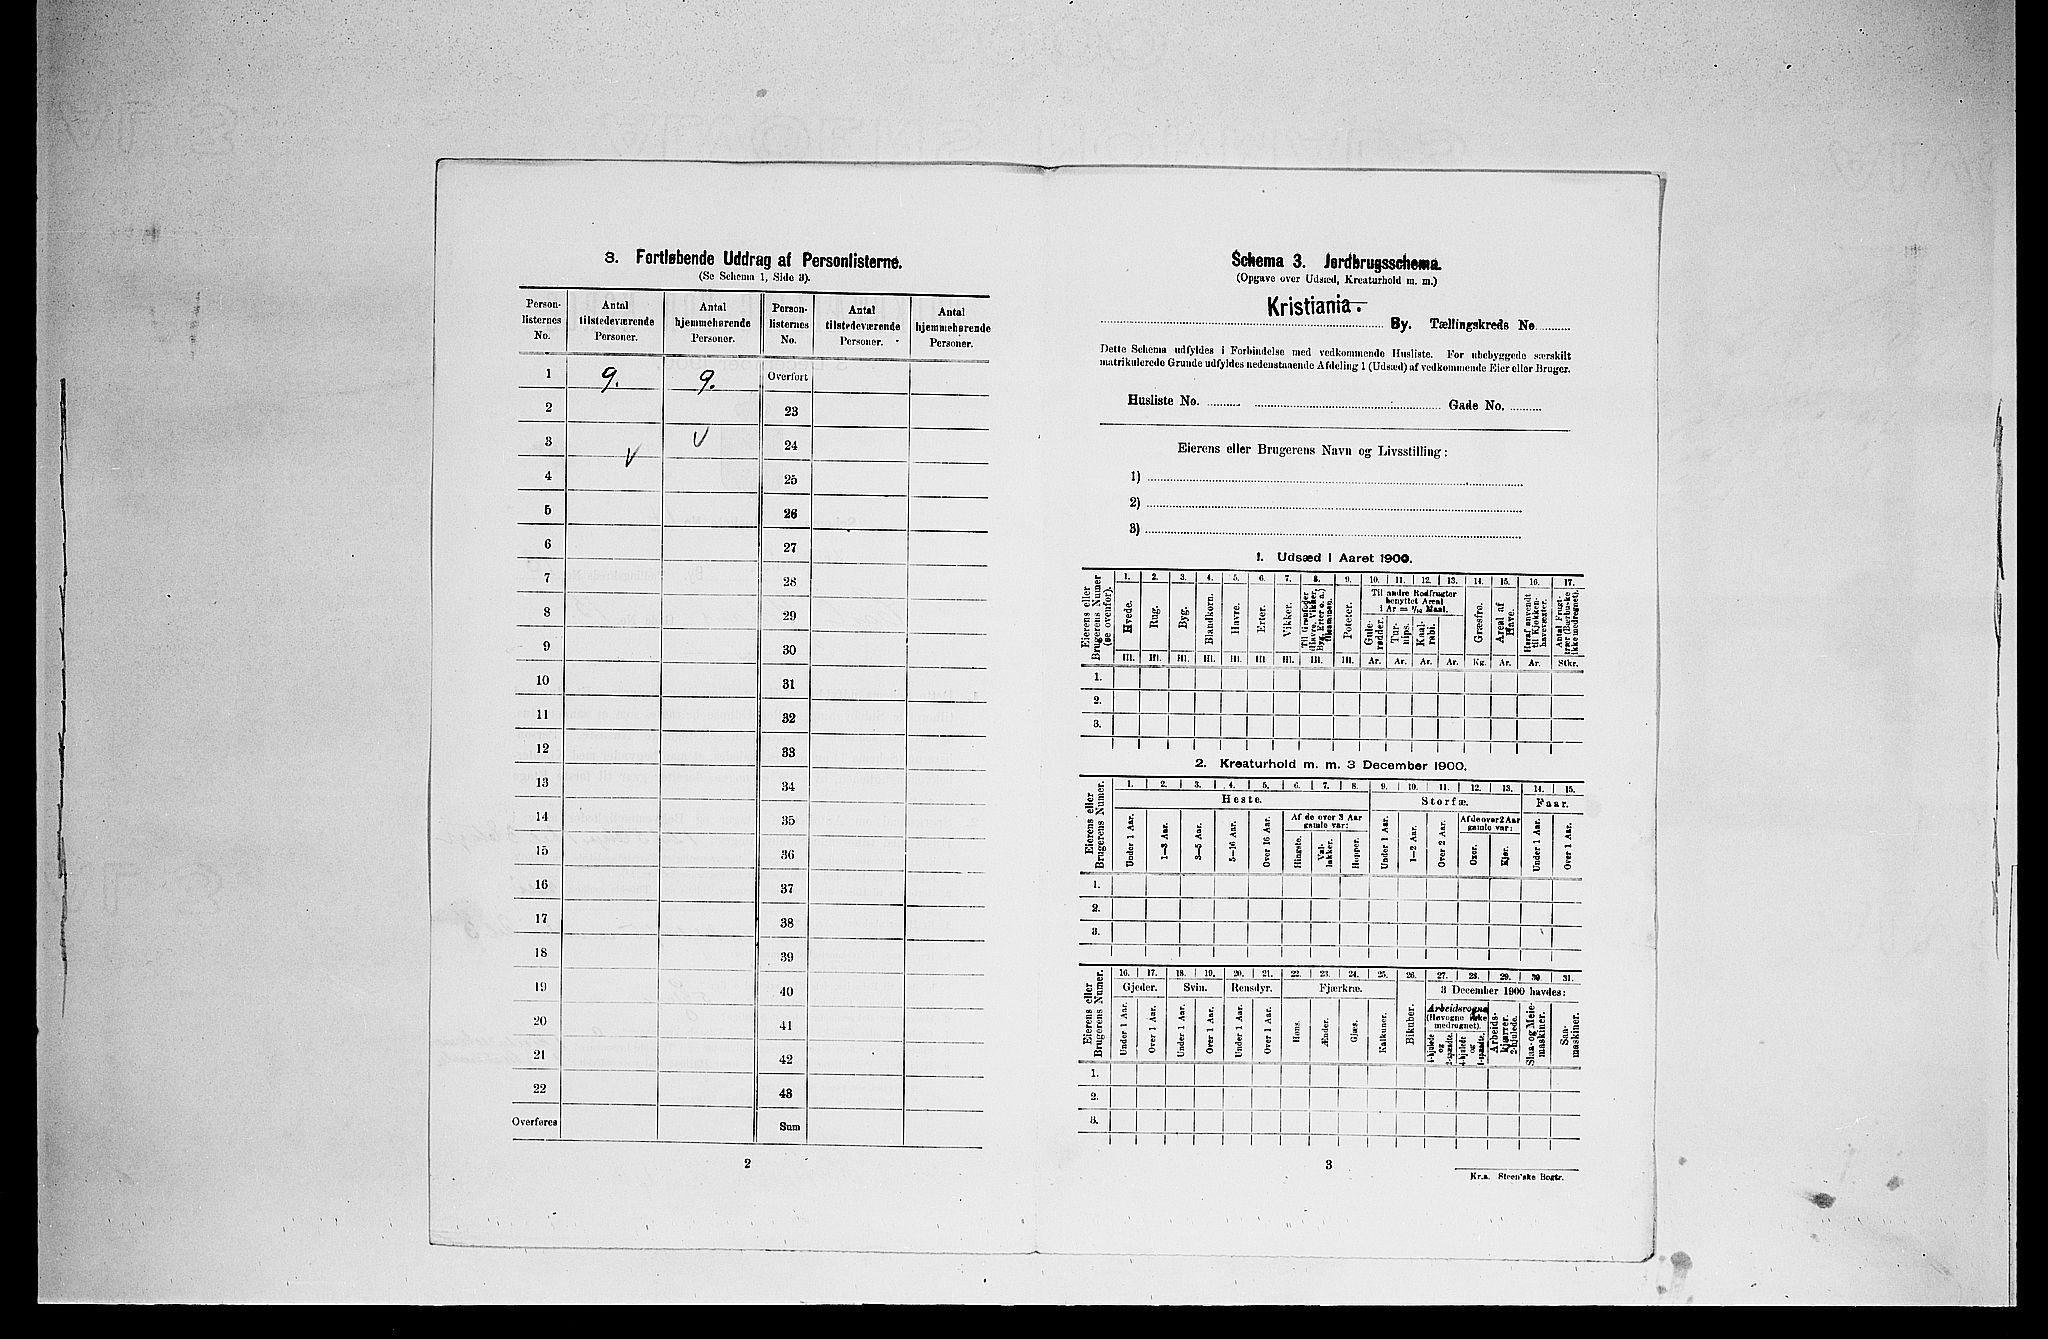 3. Fortløbende Uddrag af Personlisterne.
(Se Schema 1, Side 3).
Person-listernes No. Antal tilstedeværende Personer. Antal hjemmehørende Personer. Person-listernes No. Antal tilstedeværende Personer. Antal hjemmehørende Personer.
1 9. 9. Overført
2 23
3 V V 24
4 25
5 26
6 27
7 28
8 29
9 30
10 31
11 32
12 33
13 34
14 35
15 36
16 37
17 38
18 39
19 40
20 41
21 42
22 43
Overføres Sum
2
Schema 3. Jordbrugsschema.
(Opgave over Udsæd, Kreaturhold m. m.)
Kristiania.
By. Tællingskreds No.
Dette Schema udfyldes i Forbindelse med vedkommende Husliste. For ubebyggede særskilt
matrikulerede Grunde udfyldes nedenstaaende Afdeling 1 (Udsæd) af vedkommende Eier eller Bruger.
Husliste No. Gade No.
Eierens eller Brugerens Navn og Livsstilling:
1)
2)
3)
1. Udsæd i Aaret 1900.
Eierens eller Brugerens Numer (se ovenfor).
1. 2. 3. 4. 5. 6. 7. 8. 9. 10. 11. 12. 13. 14. 15. 16. 17.
Hvede. Rug. Byg. Blandkorn. Havre. Erter. Vikker. Til Grønfoder (Havre, Vikker, Byg, Erter o. a.) tilsammen. Poteter.
Til andre Rodfrugter benyttet Areal i Ar = 1/10 Maal.
Gule-rødder. Tur-nips. Kaal-rabi. Græsfrø. Areal af Have. Heraf anvendt til Kjøkken-havevæxter. Antal Frugt-trær (Bærbuske ikke medregnet).
Hl. Hl. Hl. Hl. Hl. Hl. Hl. Hl. Hl. Ar. Ar. Ar. Ar. Kg. Ar. Ar. Stkr.
1.
2.
3.
2. Kreaturhold m. m. 3 December 1900.
Eierens eller Brugerens Numer.
1. 2. 3. 4. 5. 6. 7. 8. 9. 10. 11. 12. 13. 14. 15.
Heste. Storfæ. Faar.
Af de over 3 Aar gamle var: Af de over 2 Aar gamle var:
Under 1 Aar. 1-3 Aar. 3-5 Aar. 5-16 Aar. Over 16 Aar. Hingste. Val-lakker. Hopper. Under 1 Aar. 1-2 Aar. Over 2 Aar. Oxer. Kjør. Under 1 Aar. Over 1 Aar.
1.
2.
3.
Eierens eller Brugerens Numer.
16. 17. 18. 19. 20. 21. 22. 23. 24. 25. 26. 27. 28. 29. 30 31.
Gjeder. Svin. Rensdyr. Fjærkræ. Bikuber. 3 December 1900 havdes:
Under 1 Aar. Over 1 Aar. Under 1 Aar. Over 1 Aar. Under 1 Aar. Over 1 Aar. Høns. Ænder. Gjæs. Kalkuner.
Arbeidsvogne (Høvogne ikke medregnet).
4-hjulede og 2-spændte. 4-hjulede og 1-spændte. Arbeids-kjærrer. 2-hjulede. Slaa- og Meie-maskiner. Saa-maskiner.
1.
2.
3.
3
Kr.a. Steen'ske Bogtr.